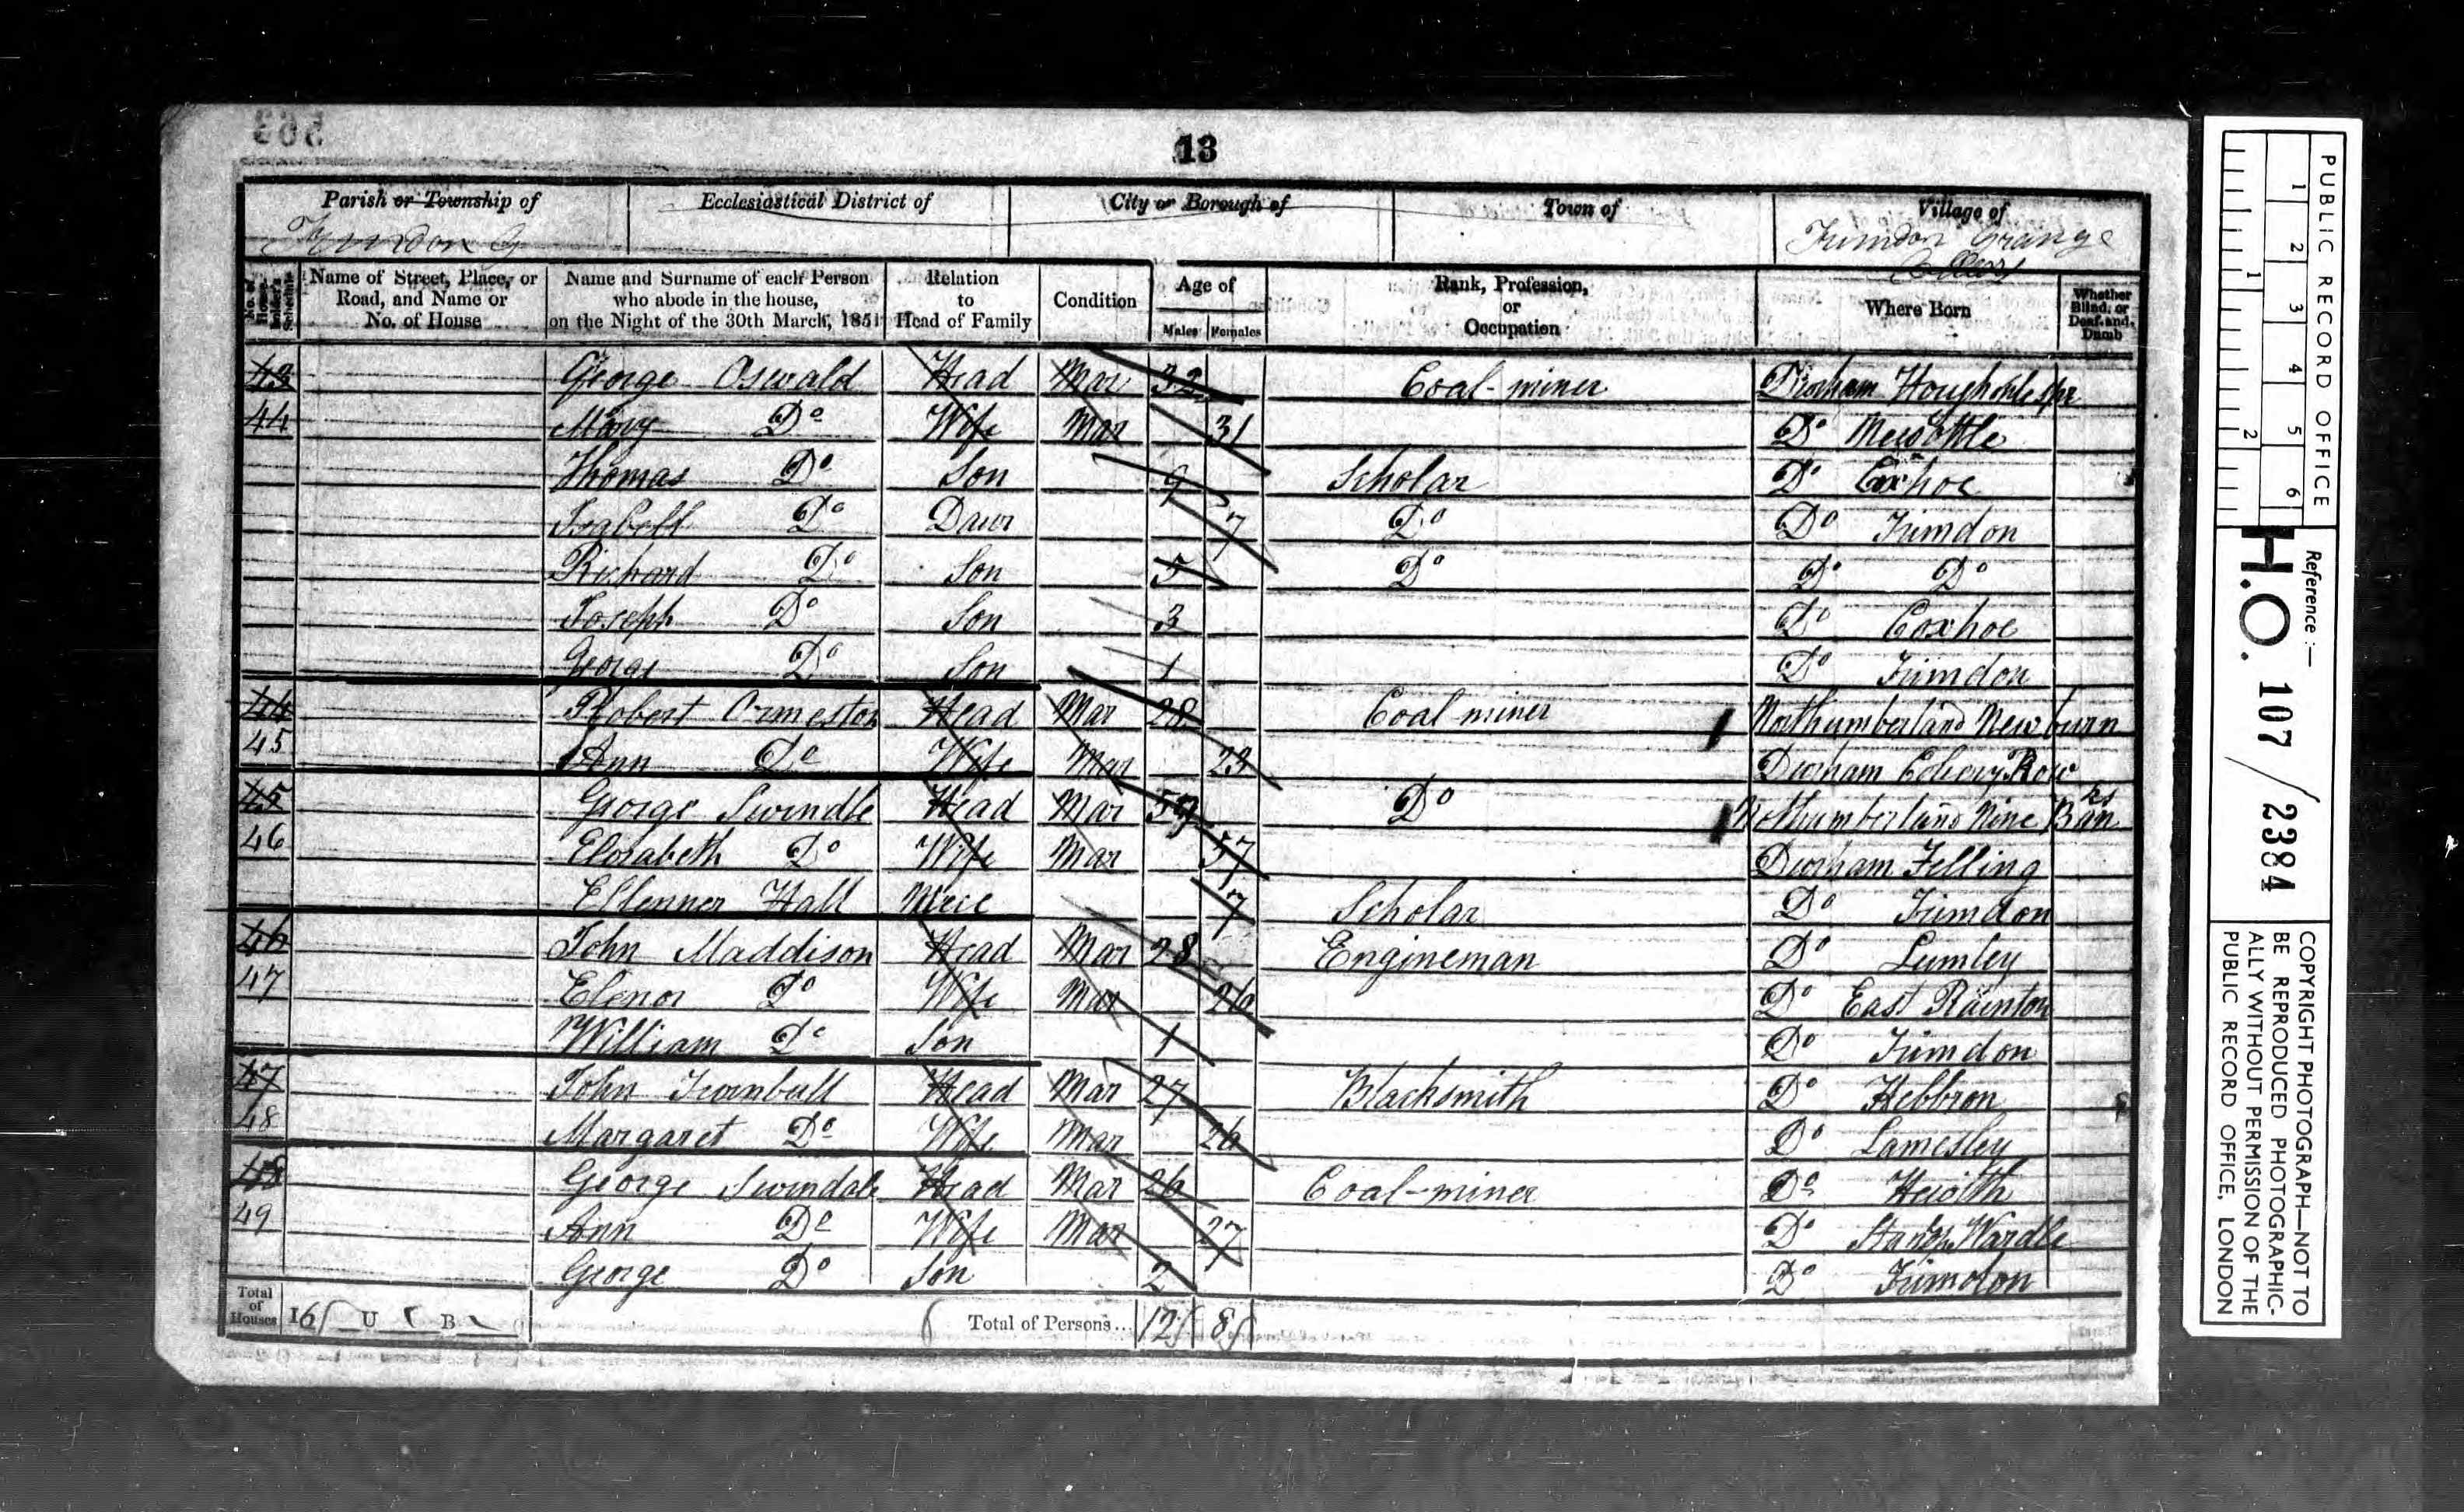 13
Parish or Township of
Ecclesiastical District of
City or Borough of
Town of
Village of
Trimdon G
Trimdon Grange
No. of House-holder's Schedule
Name of Street, Place, or Road, and Name or No. of House
Name and Surname of each Person who abode in the house, on the Night of the 30th March, 1851
Relation to Head of Family
Condition
Age of
Males
Females
Rank, Profession, or Occupation
Where Born
Whether Blind, or Deaf-and-Dumb
43 George Oswald Head Mar 32 Coal-miner Durham
44 Mary Do Wife Mar 31 Do Newbottle
Thomas Do Son 9 Scholar Do Coxhoe
Isabell Do Daur 7 Do Do Trimdon
Richard Do Son 5 Do Do Do
Joseph Do Son 3 Do Coxhoe
George Do Son 1 Do Trimdon
44 Robert Ormeston Head Mar 28 Coal-miner Northumberland Newburn
45 Ann Do Wife Mar 23 Durham Row
45 George Swindle Head Mar 59 Do Northumberland Nine Banks
46 Elosabeth Do Wife Mar 57 Durham Felling
Ellenner Hall Niece 7 Scholar Do Trimdon
46 John Maddison Head Mar 28 Engineman Do Lumley
47 Elenor Do Wife Mar 26 Do East Rainton
William Do Son 1 Do Trimdon
47 John Turnbull Head Mar 27 Blacksmith Do Hebbron
48 Margaret Do Wife Mar 26 Do Lamesley
48 George Swindale Head Mar 26 Coal-miner Do Heoith
49 Ann Do Wife Mar 27 Do
George Do Son 2 Do Trimdon
Total of Houses 16 U B
Total of Persons... 12 8
PUBLIC RECORD OFFICE
1 2 3 4 5 6
1 2
Reference :—
H.O. 107/2384
COPYRIGHT PHOTOGRAPH—NOT TO
BE REPRODUCED PHOTOGRAPHIC-
ALLY WITHOUT PERMISSION OF THE
PUBLIC RECORD OFFICE, LONDON